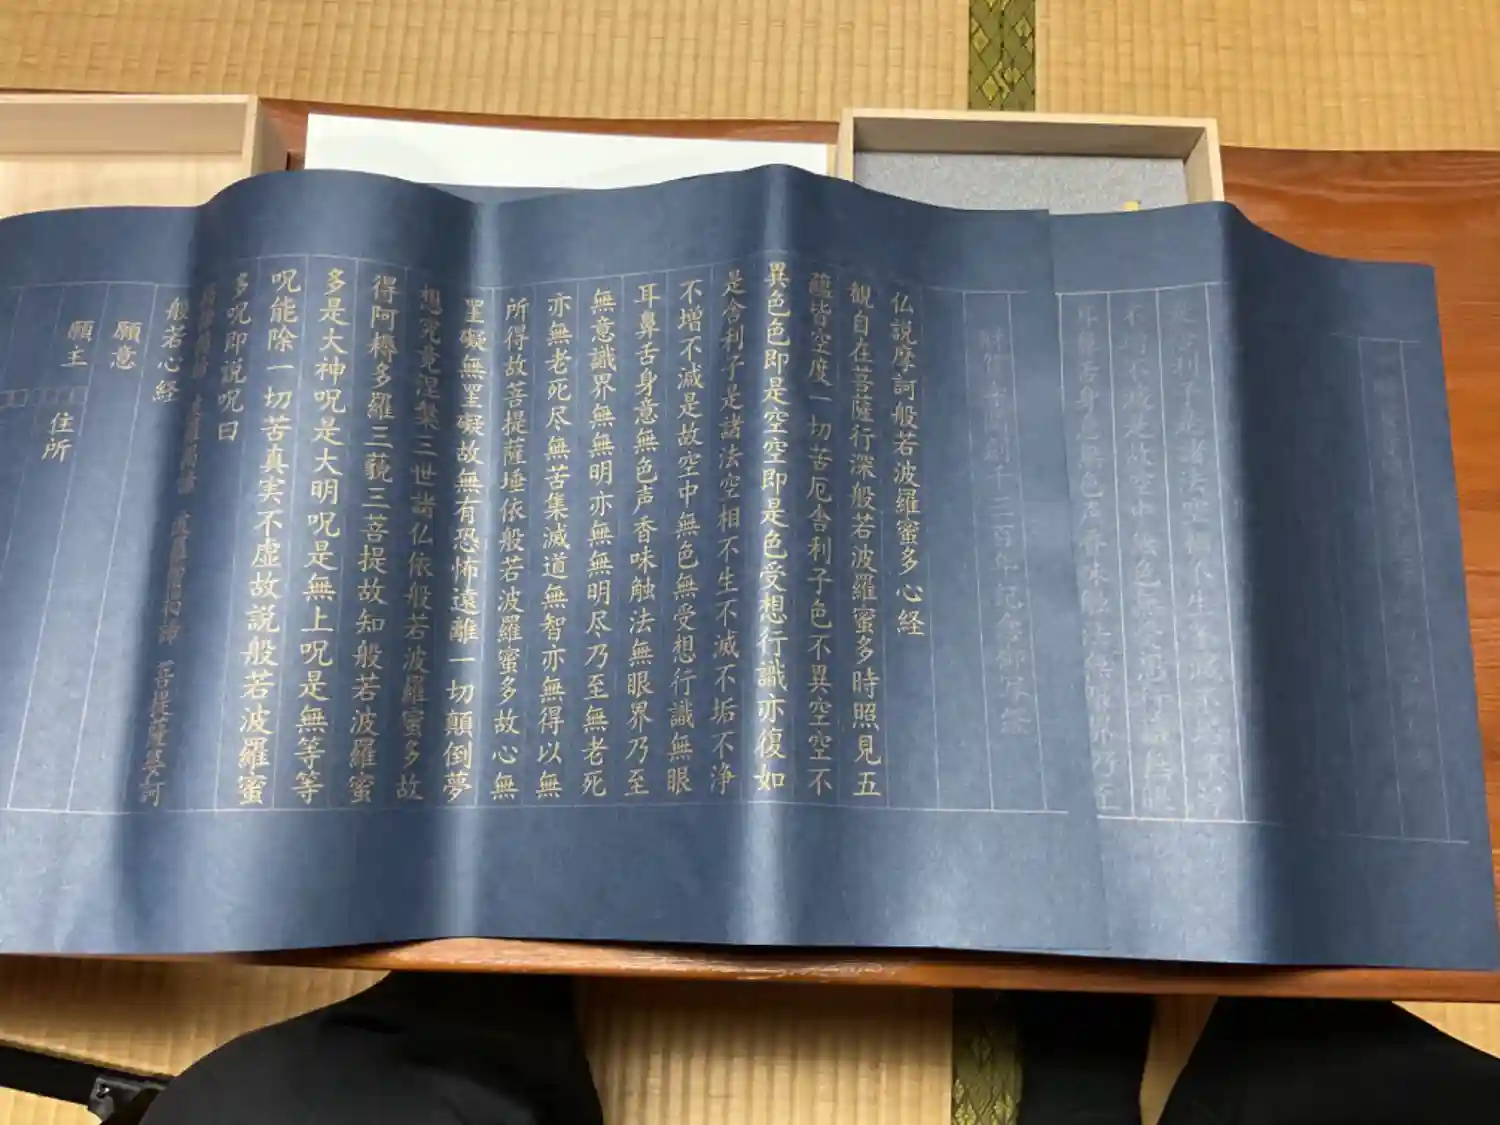 是舍利子是諸法空相不生不滅不垢不浄
不増不減是故空中無色無受想行識無眼
耳鼻舌身意無色声香味触法無眼界乃至
年記念御写経
仏説摩訶般若波羅蜜多心経
観自在菩薩行深般若波羅蜜多時照見五
蘊皆空度一切苦厄舎利子色不異空空不
異色色即是空空即是色受想行識亦復如
是舎利子是諸法空相不生不滅不垢不浄
不増不減是故空中無色無受想行識無眼
耳鼻舌身意無色声香味触法無眼界乃至
無意識界無無明亦無無明尽乃至無老死
亦無老死尽無苦集滅道無智亦無得以無
所得故菩提薩埵依般若波羅蜜多故心無
罣礙無罣礙故無有恐怖遠離一切顛倒夢
想究竟涅槃三世諸仏依般若波羅蜜多故
得阿耨多羅三藐三菩提故知般若波羅蜜
多是大神呪是大明呪是無上呪是無等等
呪能除一切苦真実不虚故説般若波羅蜜
多呪即説呪曰
羯諦羯諦 波羅羯諦 波羅僧羯諦 菩提薩婆訶
般若心経
願意
願主
住所